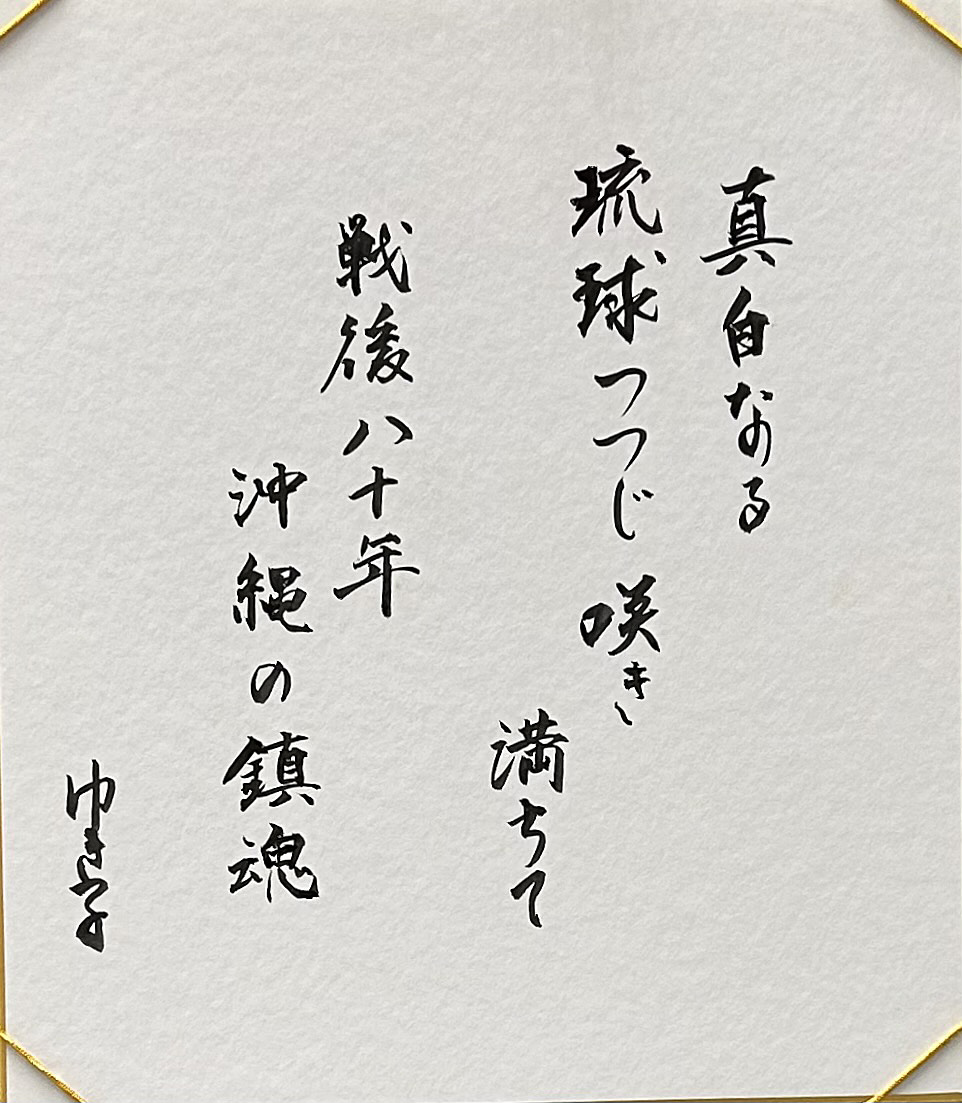 真白なる
琉球つつじ 咲き
満ちて
戦後八十年
沖縄の鎮魂
ゆき子